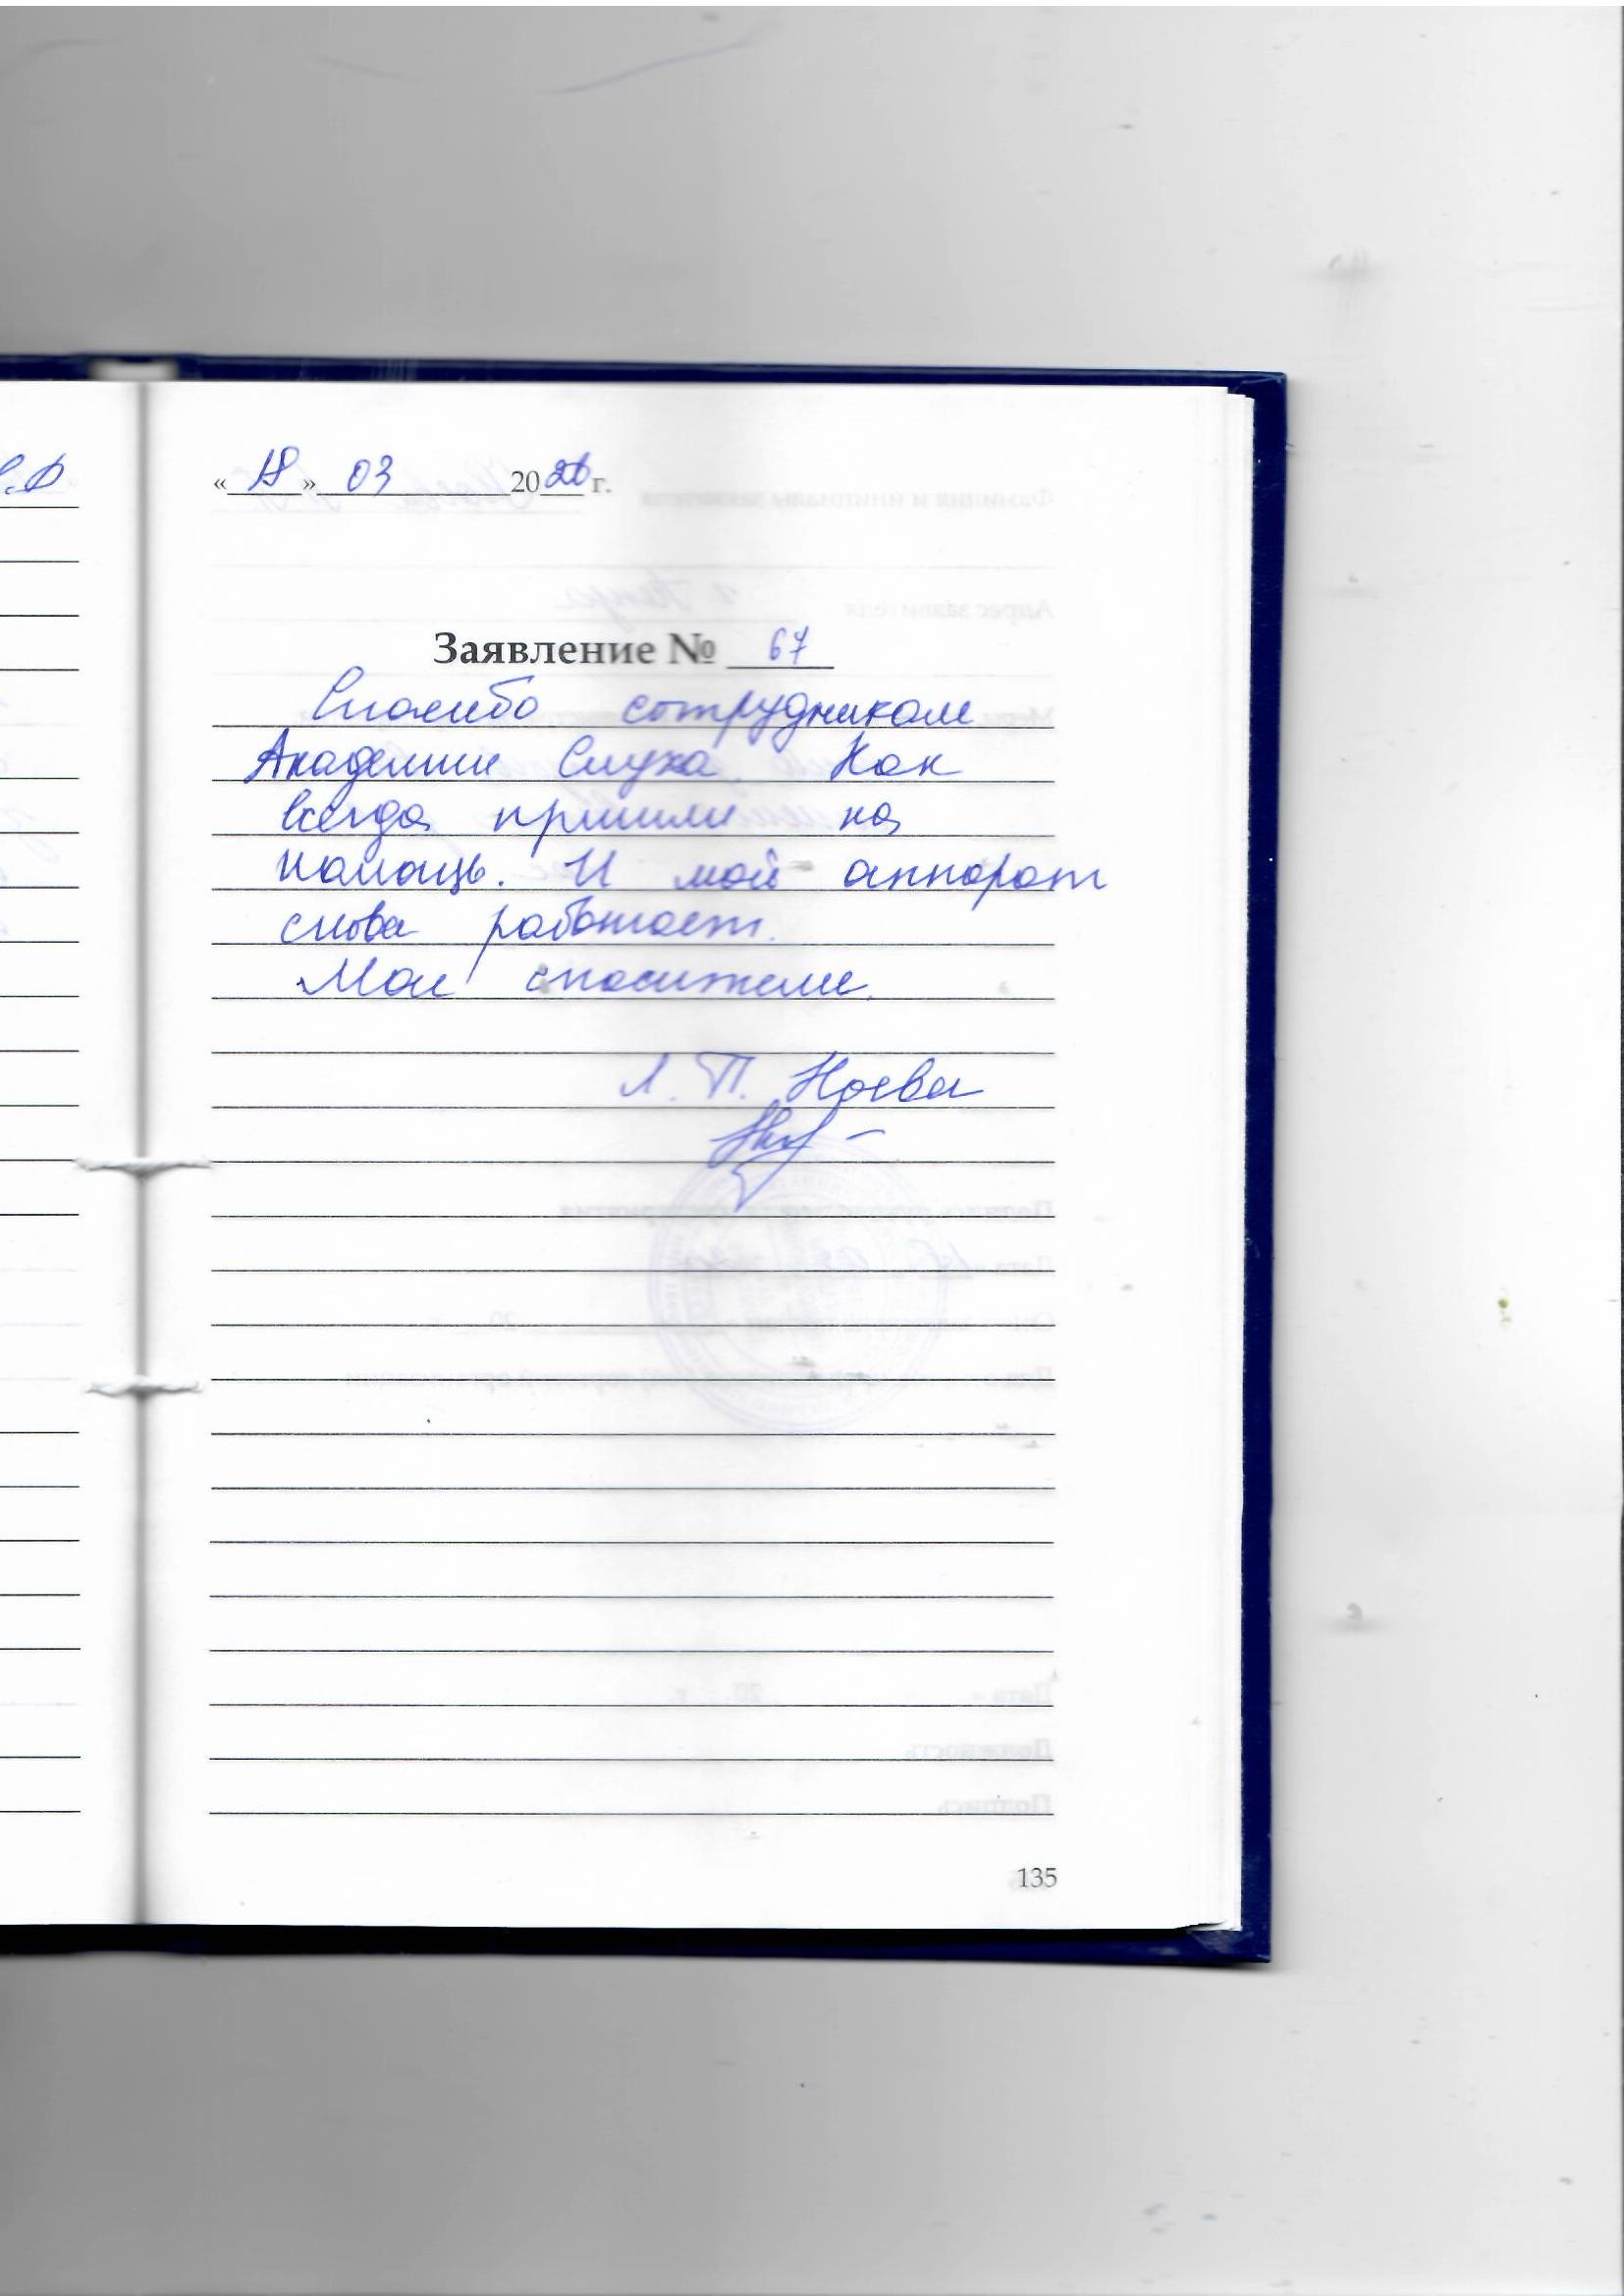 «18» 03 2020 г.
Заявление № 67
Спасибо сотрудникам
Академии Слуха. Как
всегда пришли на
помощь. И мой аппарат
снова работает.
Мои спасители.
Л. П. Ноева
135